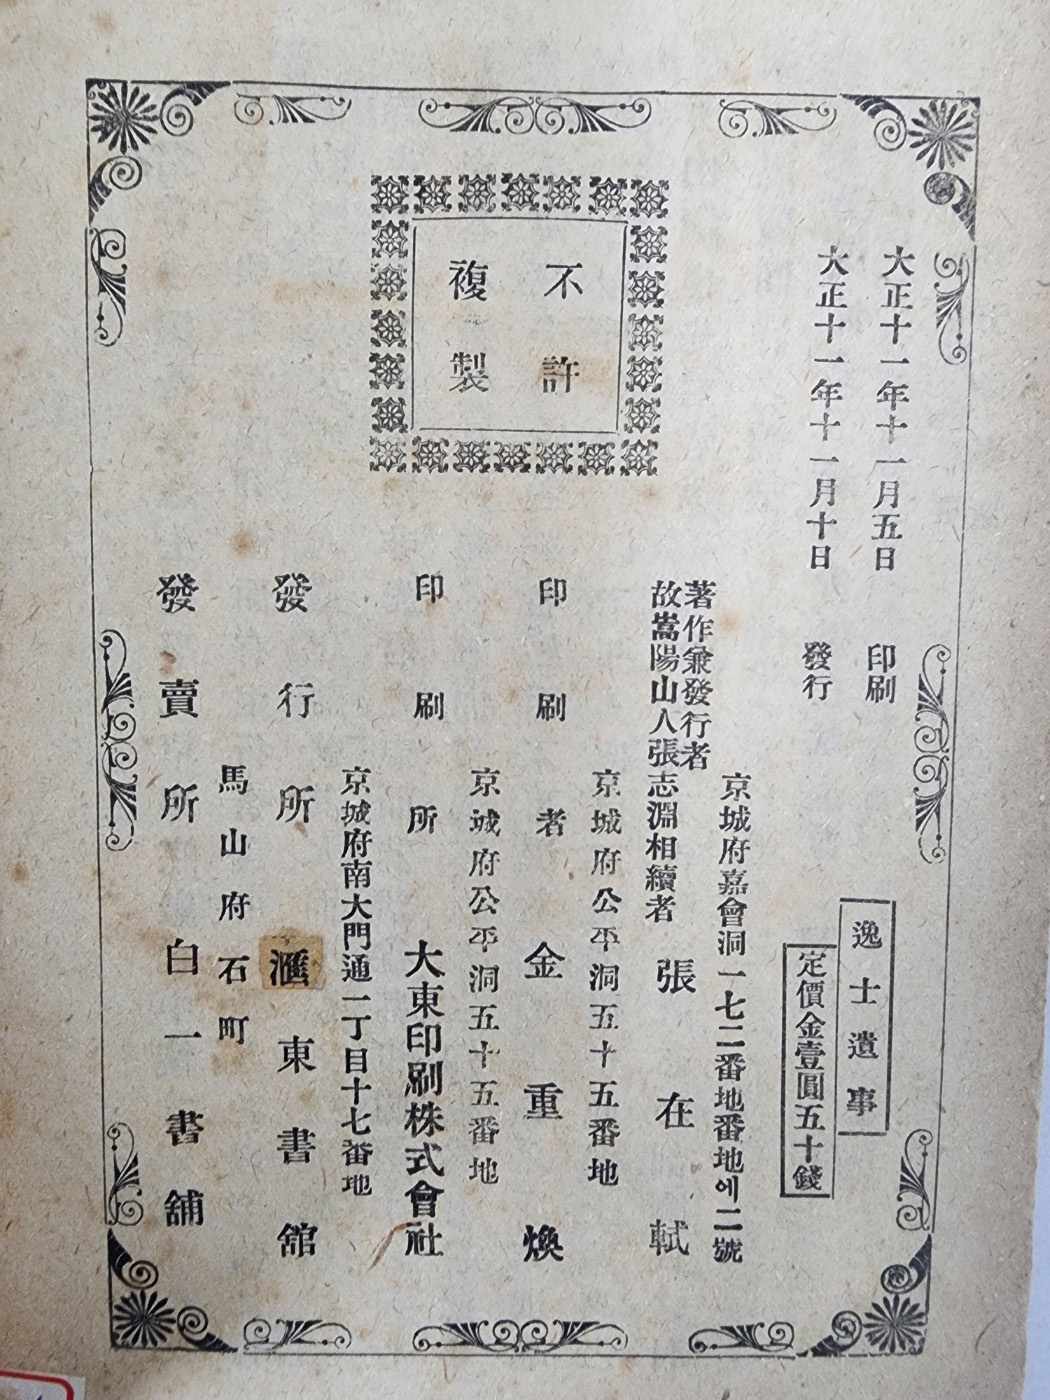 大正十一年十一月五日 印刷
大正十一年十一月十日 發行
逸士遺事
定價金壹圓五十錢
不許
複製
京城府嘉會洞一七二番地番地에二號
著作兼發行者
故嵩陽山人張志淵相續者 張在軾
京城府公平洞五十五番地
印刷者 金重煥
京城府公平洞五十五番地
印刷所 大東印刷株式會社
京城府南大門通一丁目十七番地
發行所 滙東書館
馬山府石町
發賣所 白一書舖